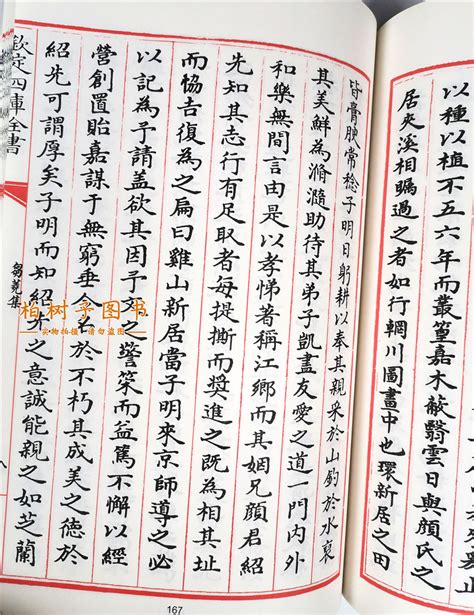 以種以植不五六年而叢篁嘉木蔽翳雲日與顏氏之
居夾溪相矚過之者如行輞川圖畫中也環新居之田
皆膏腴常稔子明日躬耕以奉其親采於山釣於水裒
其美鮮為滫瀡助待其弟子凱盡友愛之道一門内外
和樂無間言由是以孝悌著稱江鄉而其姻兄顏君紹
先知其志行有足取者每提撕而奬進之既為相其址
而恊吉復為之扁曰雞山新居當子明來京師導之必
以記為予請葢欲其因予之警䇿而益篤不懈以經
營創置貽嘉謀于無窮垂令名於不朽其成美之德於
紹先可謂厚矣子明而知紹先之意誠能親之如芝蘭
欽定四庫全書
芻蕘集
柏树子图书
实物拍摄 请勿盗图
167